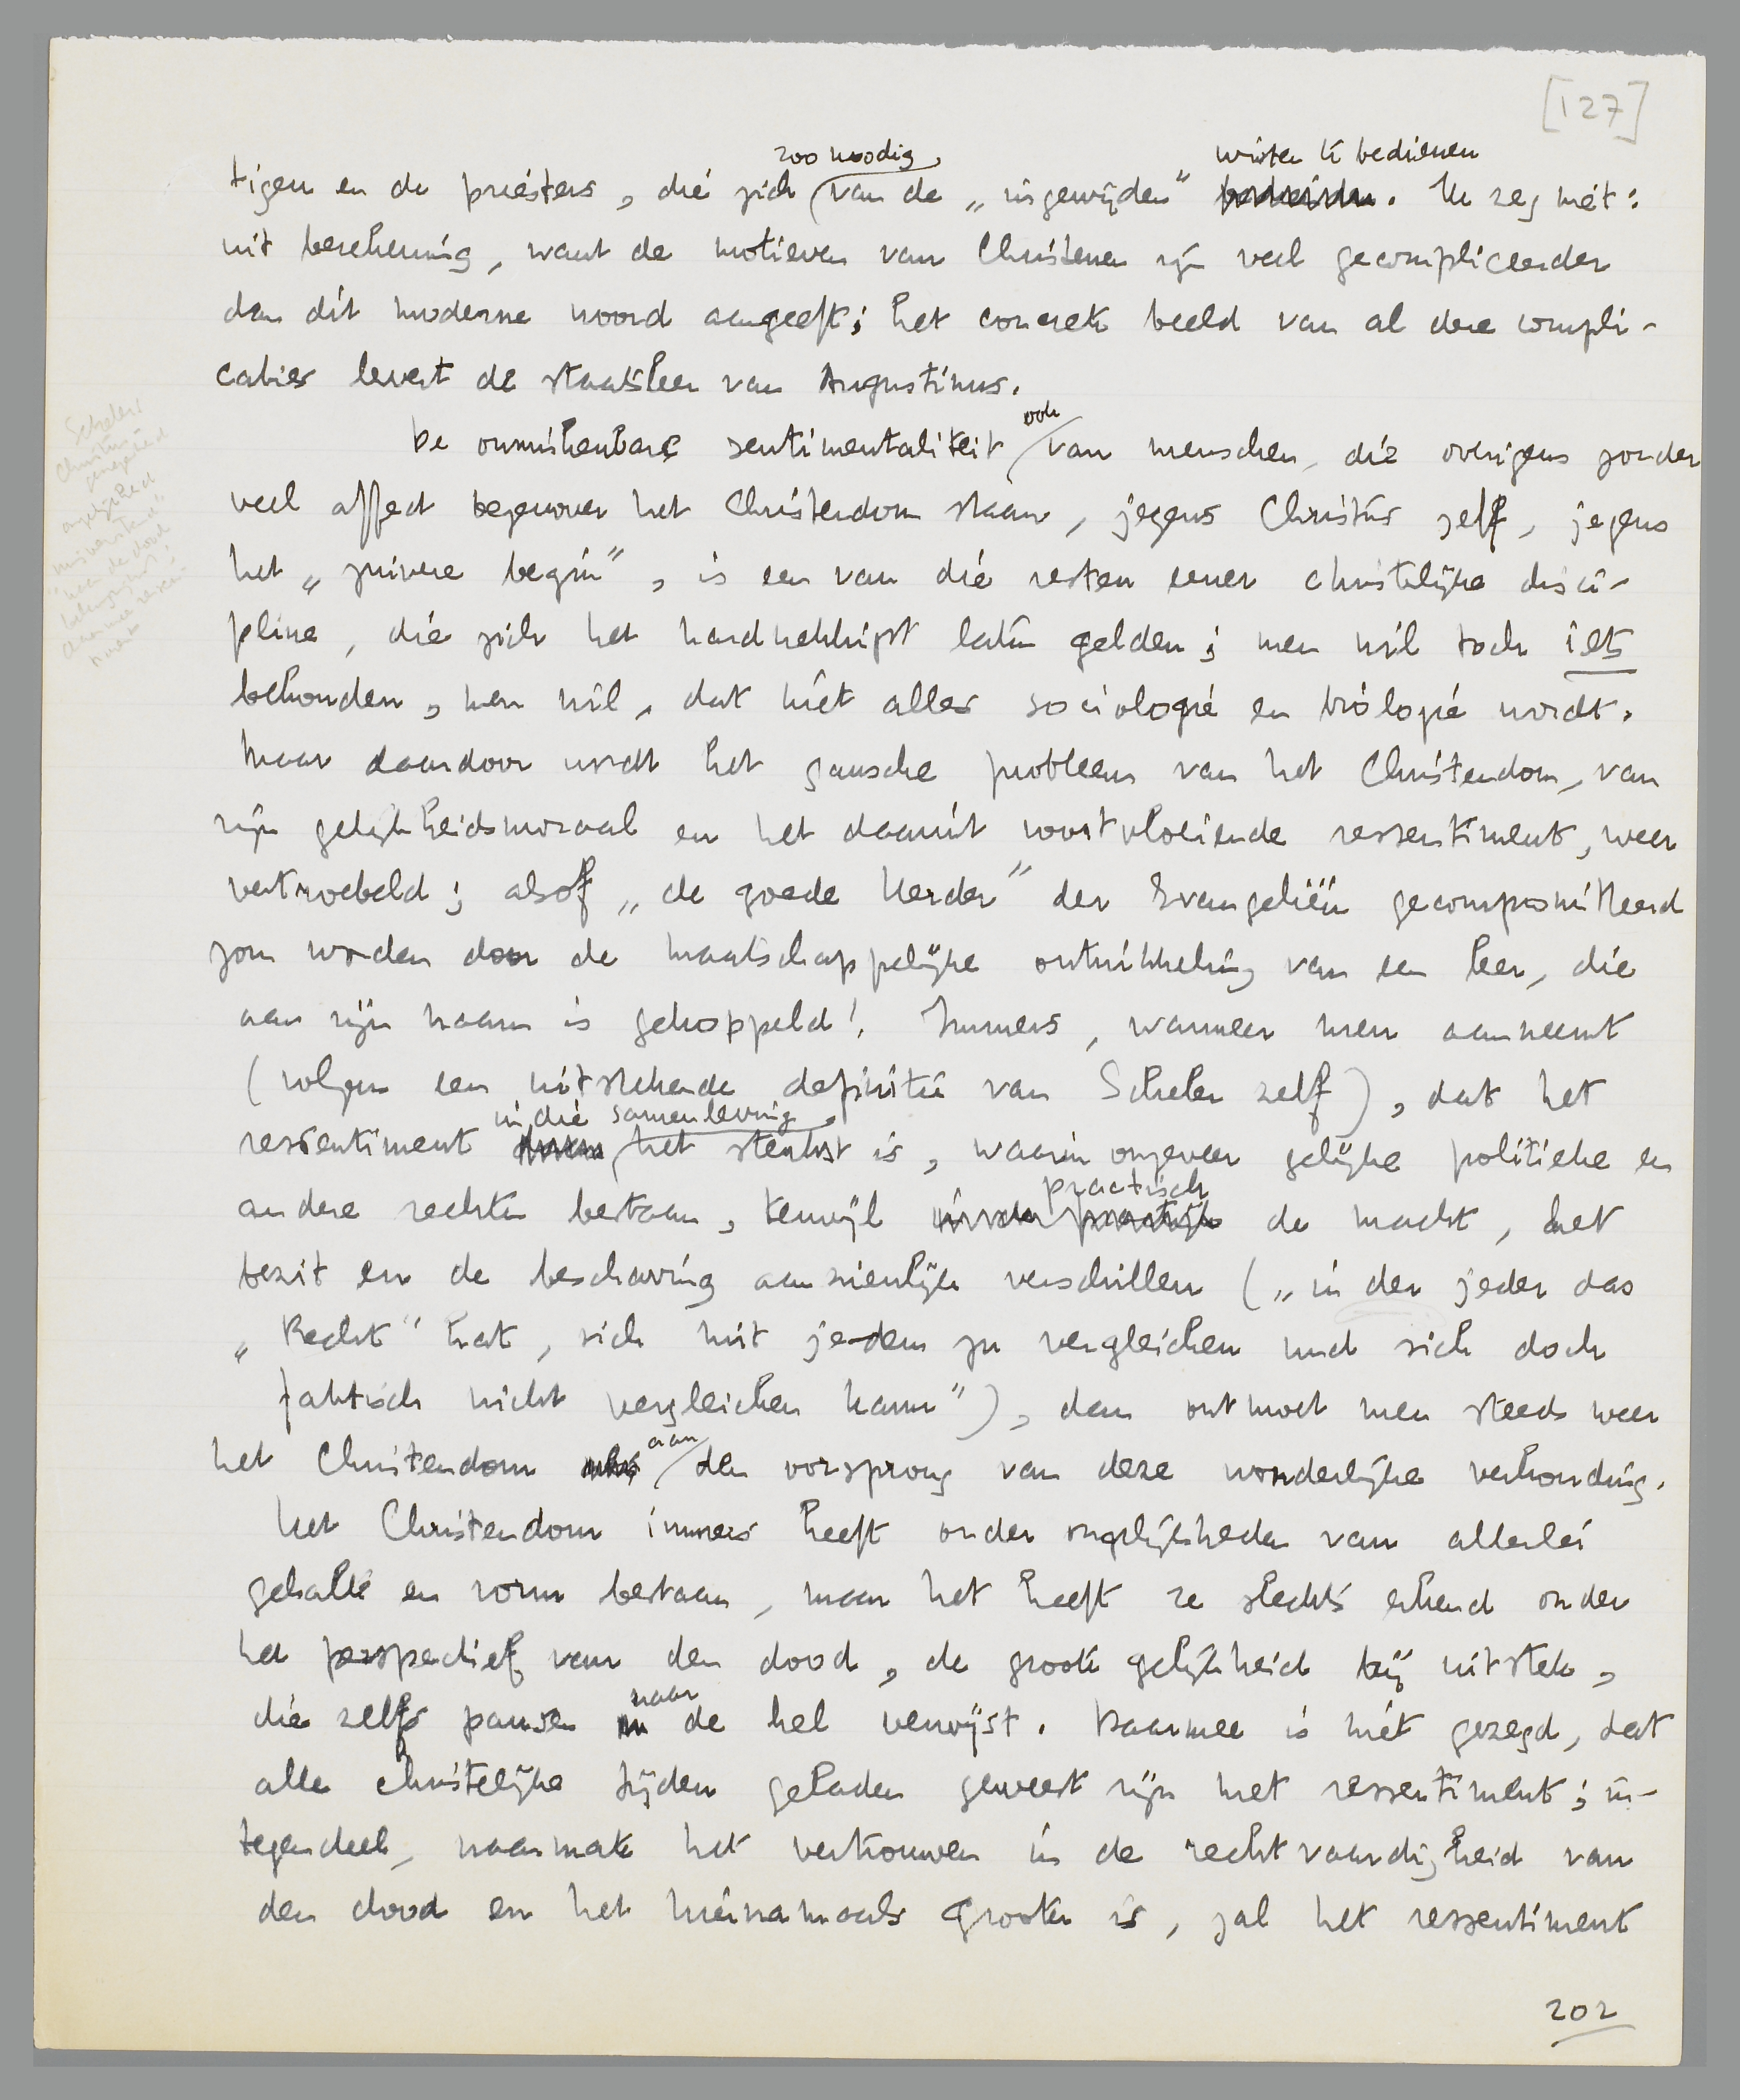 [127]
zoo noodig,
wisten te bedienen
tigen en de priesters, die zich van de „ingewijden" . Ik zeg niet:
uit berekening, want de motieven van Christenen zijn veel gecompliceerder
dan dit moderne woord aangeeft; het concrete beeld van al deze compli-
caties levert de staatsleer van Augustinus.
ook
De onmiskenbare sentimentaliteit van menschen, die overigens zonder
veel affect tegenover het Christendom staan, jegens Christus zelf, jegens
het „zuivere begin", is een van die resten eener christelijke disci-
pline, die zich het hardnekkigst laten gelden; men wil toch iets
behouden, men wil, dat niet alles sociologie en biologie wordt.
Maar daardoor wordt het gansche probleem van het Christendom, van
zijn gelijkheidsmoraal en het daaruit voortvloeiende ressentiment, weer
vertroebeld; alsof „de goede Herder" der Evangeliën gecompromitteerd
zou worden door de maatschappelijke ontwikkeling van een leer, die
aan zijn naam is gekoppeld! Immers, wanneer men aanneemt
(volgens een uitstekende definitie van Scheler zelf), dat het
in die samenleving
ressentiment het sterkst is, waarin ongeveer gelijke politieke en
practisch
andere rechten bestaan, terwijl de macht, het
bezit en de beschaving aanzienlijk verschillen („in der jeder das
„Recht" hat, sich mit jedem zu vergleichen und sich doch
faktisch nicht vergleichen kann"), dan ontmoet men steeds weer
aan
het Christendom den oorsprong van deze wonderlijke verhouding.
Het Christendom immers heeft onder ongelijkheden van allerlei
gehalte en vorm bestaan, maar het heeft ze slechts erkend onder
het perspectief van den dood, de groote gelijkheid bij uitstek,
naar
die zelfs pausen de hel verwijst. Daarmee is niet gezegd, dat
alle christelijke tijden geladen geweest zijn met ressentiment; in-
tegendeel, naarmate het vertrouwen in de rechtvaardigheid van
den dood en het hiernamaals grooter is, zal het ressentiment
202